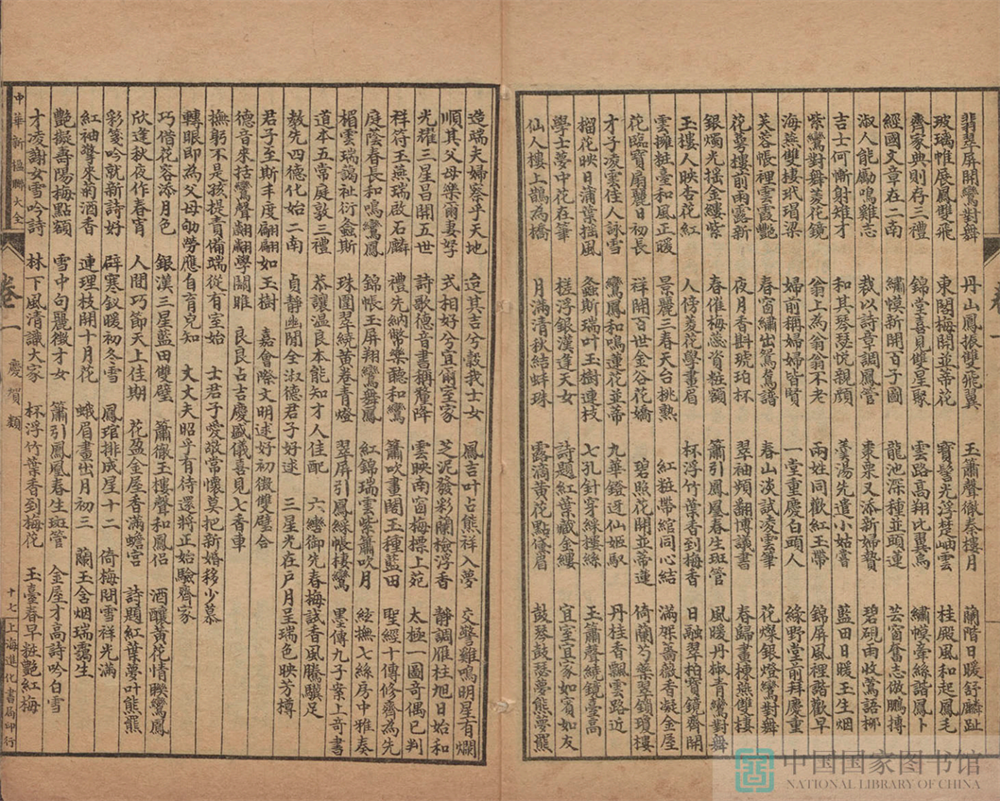 翡翠屏開鸞對舞　丹山鳳振雙飛翼　玉簫聲徹秦樓月　蘭階日暖舒麟趾
玻璃帷展鳳雙飛　東閣梅開並蒂花　寶髻光浮楚岫雲　桂殿風和起鳳毛
齊家典則存三禮　錦堂喜見雙星聚　雲路高翔比翼鳥　繡幙牽絲諧鳳卜
經國文章在二南　繡幙新開百子圖　龍池深種並頭蓮　芸窗奮志傲鵬摶
淑人能勵鳴雞志　栽以詩章調鳳管　棗栗又添新婦贄　碧硯雨收鶯語柳
吉士何慚射雉才　和其琴瑟悅親顏　羹湯先遣小姑嘗　藍田日暖玉生烟
紫鸞對舞菱花鏡　翁上為翁翁不老　兩姓同歡紅玉帶　錦屏風裡諧歡早
海燕雙棲玳瑁梁　婦前稱婦婦皆賢　一堂重慶白頭人　綠野堂前拜慶重
芙蓉帳裡雲霞艷　春窗繡出鴛鴦譜　春山淡試凌雲筆　花燦銀燈鸞對舞
花萼樓前雨露新　夜月香斟琥珀杯　翠袖頻翻博議書　春歸畫棟燕雙棲
銀燭光搖金縷紫　春催梅蕊資眉額　簫引鳳凰春生斑管　風暖丹椒青鸞對舞
玉樓人映杏花紅　人傍菱花學畫眉　杯浮竹葉香到梅香　日融翠柏寶鏡齊開
雲擁粧臺和風正暖　景麗三春天台挑熟　紅粧帶綰同心結　滿架薔薇香凝金屋
花臨寶扇麗日初長　祥開百世金谷花嬌　碧照花開並蒂蓮　倚蘭芍藥翠鎖瓊樓
才子凌雲佳人詠雪　鸞鳳和鳴蓮花並蒂　九華鐙近仙姬馭　丹桂香飄雲路近
榴花映日蒲葉搖風　螽斯瑞叶玉樹連枝　七孔針穿綵樓絲　玉簫聲繞鏡臺高
學士夢中花在筆　槎浮銀漢逢天女　詩題紅葉藏金縷　宜室宜家如賓如友
仙人樓上鵲為橋　月滿清秋結蚌珠　露滴黃花點脩眉　鼓琴鼓瑟夢熊夢羆
造端夫婦察乎天地　迨其吉兮穀我士女　鳳吉叶占熊祥入夢　交警雞鳴明星有爛
順其父母樂爾妻孥　式相好兮宜爾室家　芝泥發彩蘭檢浮香　靜調雁柱旭日始和
光耀三星昌開五世　詩歌德音書稱釐降　雲映南窗梅標上苑　太極一圖奇偶已判
祥符玉燕瑞啟石麟　禮先納幣樂聽和鸞　簫吹畫閣玉種藍田　聖經十傳修齊為先
庭蔭春長和鳴鸞鳳　錦帳玉屏翔鸞舞鳳　紅錦瑞雲紫簫吹月　絃撫七絲房中雅奏
楣雲瑞靄祉衍螽斯　珠圍翠繞黃卷青燈　翠屏引鳳綵帳棲鸞　墨傳九子案上奇書
道本五常庭敦三禮　恭讓溫良本能知才人佳配　六轡御先春梅試香風騰驥足
教先四德化始二南　貞靜幽閒全淑德君子好逑　三星光在戶月呈瑞色映芳樽
君子至斯丰度翩翩如玉樹　嘉會際文明述好初徵雙璧合
德音來括鸞聲翽翽學關雎　良辰占吉慶盛儀喜見七香車
撫躬不是孩提責備端從有室始　士君子愛敬當懷莫把新婚移少慕
轉眼即為父母劬勞應自育兒知　大丈夫昭乎有待還將正始驗齊家
巧借花容添月色　銀漢三星藍田雙璧　簫徹玉樓聲和鳳侶　酒釀黃花情睽鸞鳳
欣逢秋夜作春宵　人間巧節天上佳期　花盈金屋香滿蟾宮　詩題紅葉夢叶熊羆
彩箋吟就新詩好　辟寒釵暖初冬雪　鳳琯排成星十二　倚梅閣雪祥光滿
紅袖擎來菊酒香　連理枝開十月花　蛾眉畫出月初三　蘭玉含烟瑞靄生
艷擬壽陽梅點額　雪中句麗徵才女　簫引鳳凰春生斑管　金屋才高詩吟白雪
才凌謝女雪吟詩　林下風清識大家　杯浮竹葉香到梅花　玉臺春早粧艷紅梅
中華新楹聯大全　卷一　慶賀類　十七　上海進化書局印行
中国国家图书馆
NATIONAL LIBRARY OF CHINA